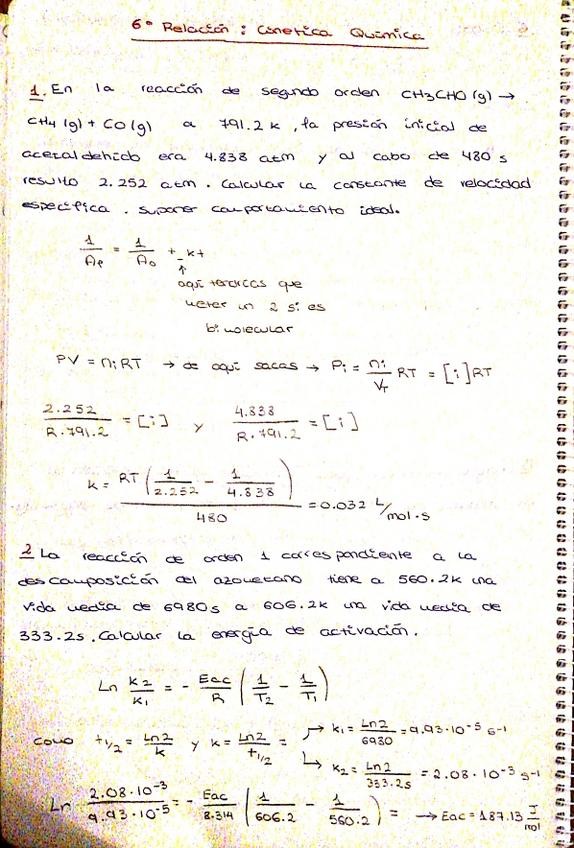 6º Relación: Cinetica Química
1. En la reacción de segundo orden CH3CHO (g) →
CH4 (g) + CO (g) a 791.2 K, la presión inicial de
acetaldehido era 4.838 atm y al cabo de 480 s
resulto 2.252 atm. Calcular la constante de velocidad
especifica. Suponer comportamiento ideal.
1/Af = 1/A0 + _kt
↑
aqui tendrias que
meter un 2 si es
bimolecular
PV = niRT → de aqui sacas → Pi = ni/VT RT = [i]RT
2.252/R·791.2 = [i] y 4.838/R·791.2 = [i]
k = RT (1/2.252 - 1/4.838) / 480 = 0.032 L/mol·s
2 La reacción de orden 1 correspondiente a la
descomposición del azometano tiene a 560.2K una
vida media de 6980s a 606.2K una vida media de
333.2s. Calcular la energía de activación.
Ln K2/K1 = - Eac/R (1/T2 - 1/T1)
como t1/2 = Ln2/k y k = Ln2/t1/2 = → k1 = Ln2/6980 = 9.93·10-5 s-1
↳ k2 = Ln2/333.2s = 2.08·10-3 s-1
Ln 2.08·10-3/9.93·10-5 = - Eac/8.314 (1/606.2 - 1/560.2) = → Eac = 187.13 J/mol